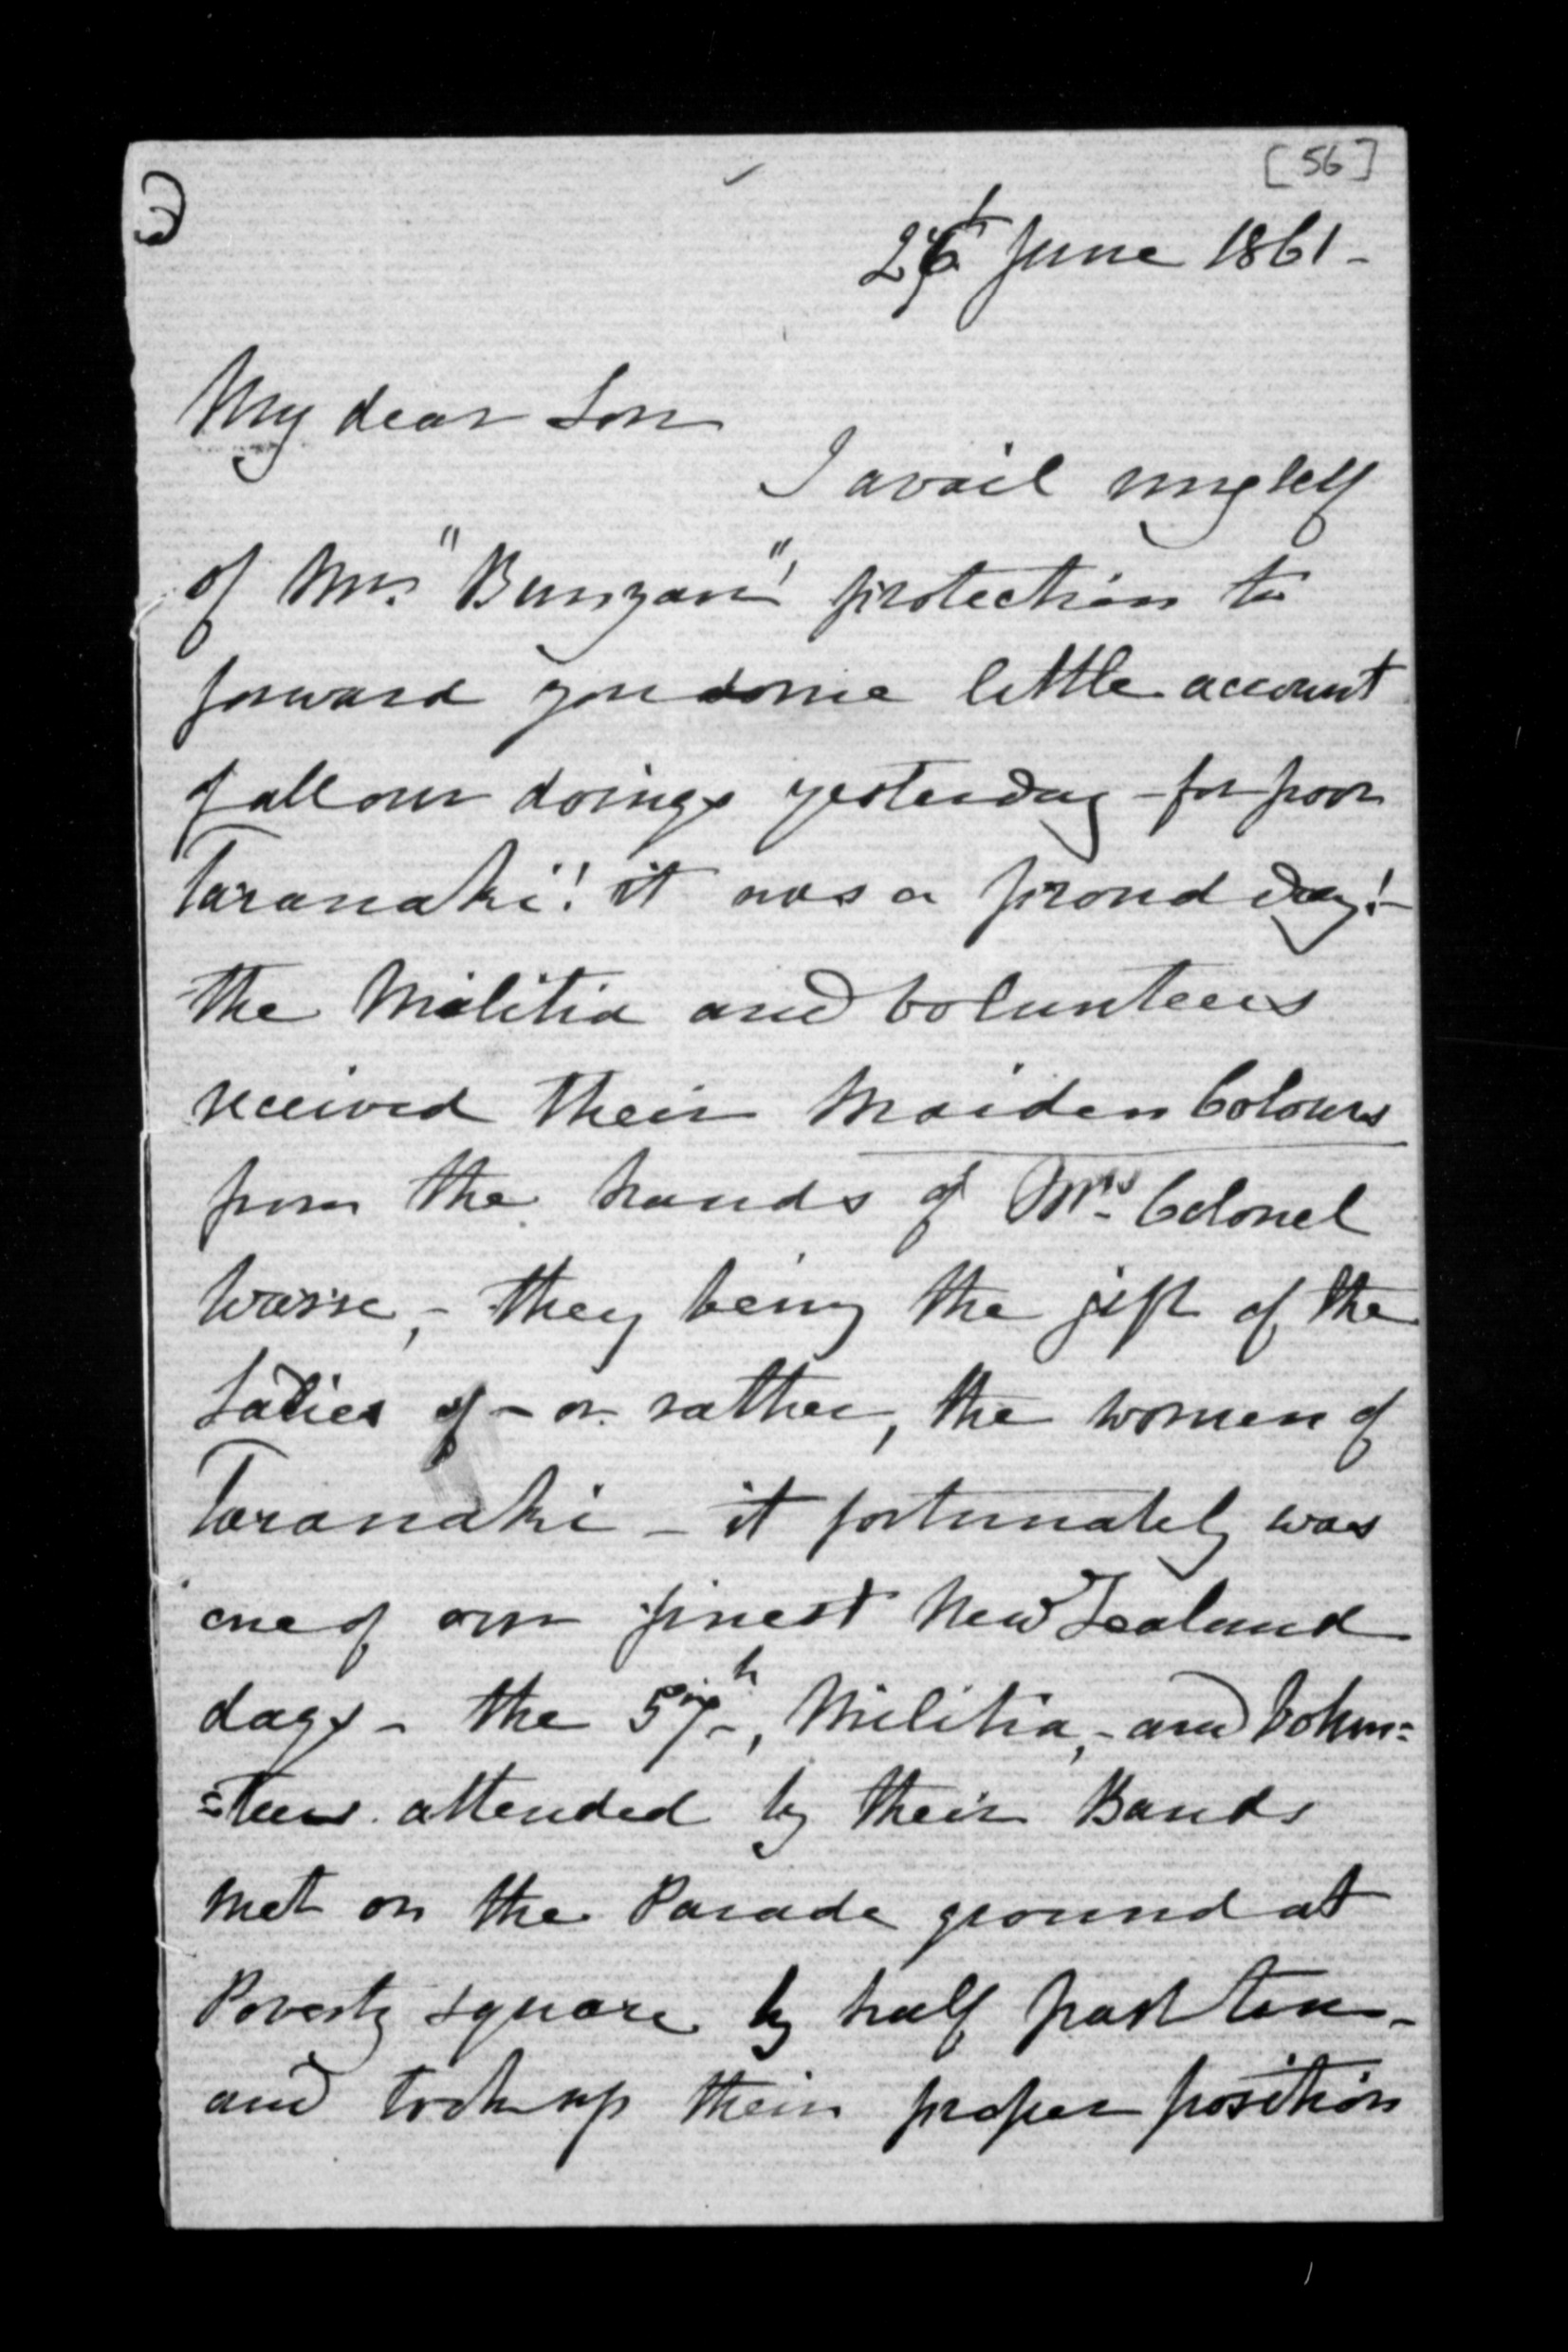 [56]
26th June 1861 -
My dear Son
I avail myself
of Mrs. "Bunyan's" protection to
forward you some little account
of all our doings yesterday - for poor
Taranaki! it was a proud day! -
the Militia and Volunteers
received their Maiden Colours
from the hands of Mrs. Colonel
Warre, - they being the gift of the
Ladies of - or rather, the women of
Taranaki - it fortunately was
one of our finest New Zealand
days - the 57th, Militia, - and Volun=
=teers attended by their Bands
met on the Parade ground at
Poverty square by half past ten -
and took up their proper position